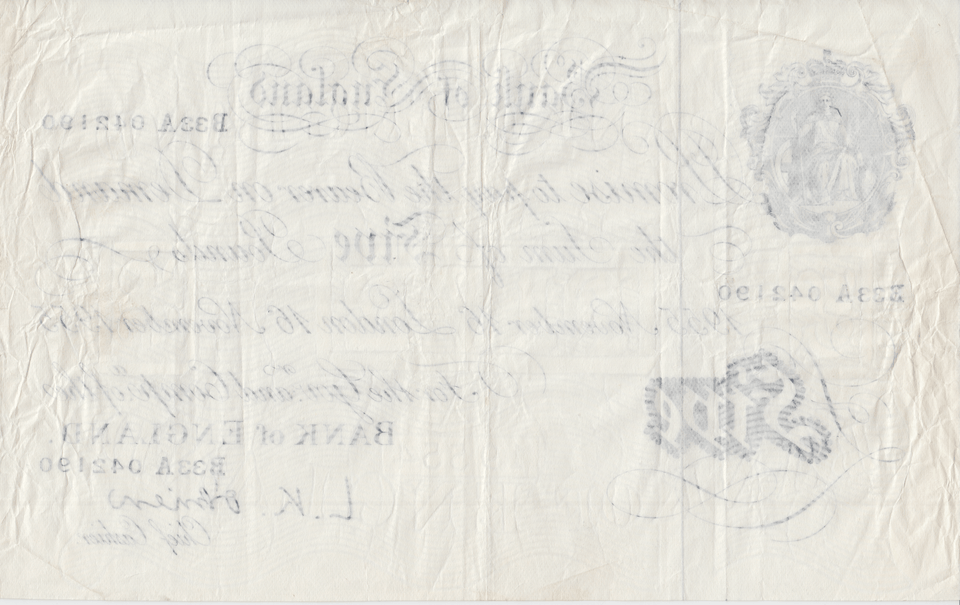 Bank of England
B33A 042190
Promise to pay the Bearer on Demand
the Sum of Five Pounds
B33A 042190
1955 November 16 London 16 November 1955
For the Gov.r and Comp.a of the
BANK of ENGLAND.
Five
B33A 042190
L.K. O'Brien
Chief Cashier